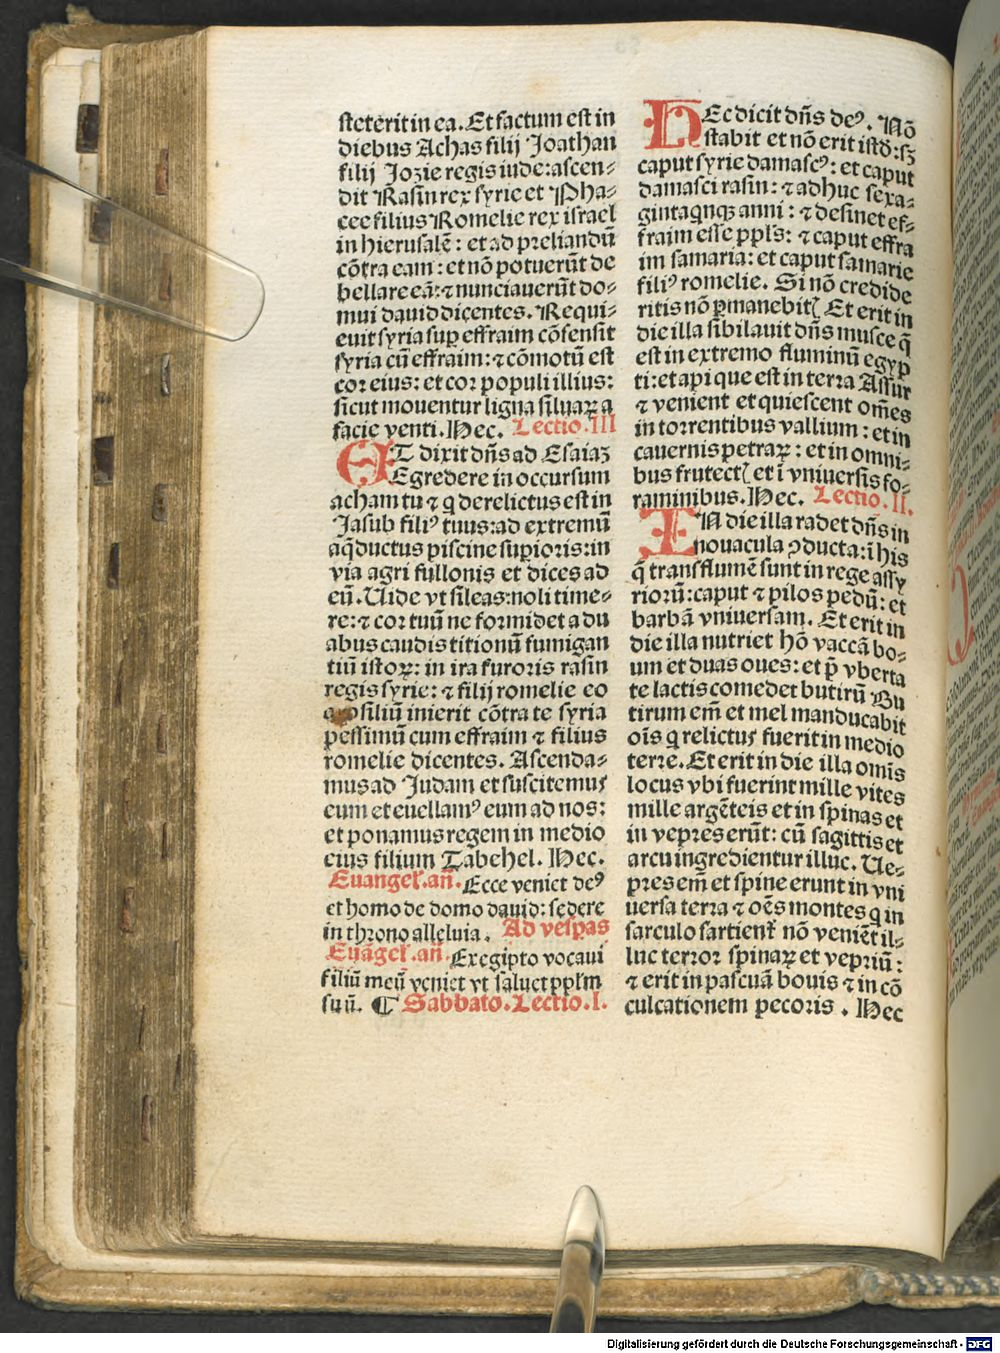 steterit in ea. Et factum est in
diebus Achas filij Joathan
filij Jozie regis iude: ascen⸗
dit Rasin rex syrie et Pha⸗
cee filius Romelie rex israel
in hierusalē: et ad preliandū
cōtra eam: et nō potuerūt de
bellare eā: ⁊ nunciauerūt do⸗
mui dauid dicentes. Requi⸗
euit syria suꝑ effraim cōsensit
syria cū effraim: ⁊ cōmotū est
cor eius: et cor populi illius:
sicut mouentur ligna siluaꝝ a
facie venti. Hec. Lectio. III
ET dixit dn̄s ad Esaiaꝫ
Egredere in occursum
acham tu ⁊ q derelictus est in
Jasub filiꝰ tuus: ad extremū
aq̄ductus piscine suꝑioris: in
via agri fullonis et dices ad
eū. Uide vt sileas: noli time⸗
re: ⁊ cor tuū ne formidet a du
abus caudis titionū fumigan
tiū istoꝝ: in ira furoris rasin
regis syrie: ⁊ filij romelie eo
siliū inierit cōtra te syria
pessimū cum effraim ⁊ filius
romelie dicentes. Ascenda⸗
mus ad Judam et suscitemus
eum et euellamꝰ eum ad nos:
et ponamus regem in medio
eius filium Tabehel. Hec.
Euangeł. an̄. Ecce veniet deꝰ
et homo de domo dauid: sedere
in throno alleluia. Ad vesꝑas
Euāgeł. an̄. Ex egipto vocaui
filiū meū veniet vt saluet pp̄lm
suū. ¶ Sabbato. Lectio. I.
HEc dicit dn̄s deꝰ. Nō
stabit et nō erit istđ: sꝫ
caput syrie damascꝰ: et caput
damasci rasin: ⁊ adhuc sexa⸗
ginta qnqꝫ anni: ⁊ desinet ef⸗
fraim esse pp̄ls: ⁊ caput effra
im samaria: et caput samarie
filiꝰ romelie. Si nō credide
ritis nō ꝑmanebitꝭ Et erit in
die illa sibilauit dn̄s musce q̄
est in extremo fluminū egyp
ti: et api que est in terra Assur
⁊ venient et quiescent om̄es
in torrentibus vallium: et in
cauernis petraꝝ: et in omni⸗
bus frutectꝭ et ī vniuersis fo⸗
raminibus. Hec. Lectio. II.
IN die illa radet dn̄s in
nouacula ꝯducta: ī his
q̄ trans flumē sunt in rege assy
rioꝝ: caput ⁊ pilos pedū: et
barbā vniuersam. Et erit in
die illa nutriet hō vaccā bo⸗
um et duas oues: et p̄ vberta
te lactis comedet butirū Bu
tirum em̄ et mel manducabit
oīs q relictus fuerit in medio
terre. Et erit in die illa omīs
locus vbi fuerint mille vites
mille argēteis et in spinas et
in vepres erūt: cū sagittis et
arcu ingredientur illuc. Ue⸗
pres em̄ et spine erunt in vni
uersa terra ⁊ oēs montes q in
sarculo sartient̄ nō veniēt il⸗
luc terror spinaꝝ et vepriū:
⁊ erit in pascuā bouis ⁊ in cō
culcationem pecoris. Hec
Digitalisierung gefördert durch die Deutsche Forschungsgemeinschaft - DFG